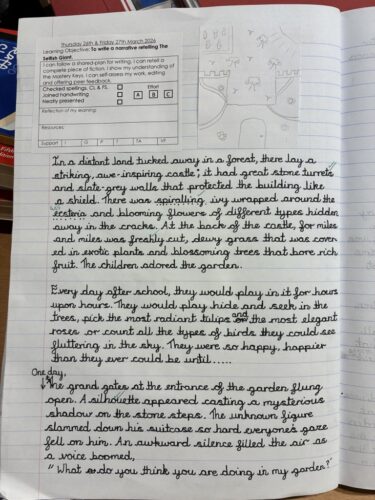 Thursday 26th & Friday 27th March 2026
Learning Objective: To write a narrative retelling The
Selfish Giant.
I can follow a shared-plan for writing. I can retell a
complete piece of fiction. I show my understanding of
the Mastery Keys. I can self-assess my work, editing
and offering peer feedback.
Checked spellings, CL & FS.
Joined handwriting
Neatly presented
Effort
A B C
Reflection of my learning:
Resources:
Support I G P T TA VF
In a distant land tucked away in a forest, there lay a
striking, awe-inspiring castle; it had great stone turrets
and slate-grey walls that protected the building like
a shield. There was spiralling, ivy wrapped around the
exteria and blooming flowers of different types hidden
away in the cracks. At the back of the castle, for miles
and miles was freshly cut, dewy grass that was cover
ed in exotic plants and blossoming trees that bore rich
fruit. The children adored the garden.
Every day after school, they would play in it for hours
upon hours. They would play hide and seek in the
trees, pick the most radiant tulips and the most elegant
roses or count all the types of birds they could see
fluttering in the sky. They were so happy, happier
than they ever could be until.....
One day,
The grand gates at the entrance of the garden flung
open. A silhouette appeared casting a mysterious
shadow on the stone steps. The unknown figure
slammed down his suitcase so hard everyone's gaze
fell on him. An awkward silence filled the air as
a voice boomed,
"What do you think you are doing in my garden?"